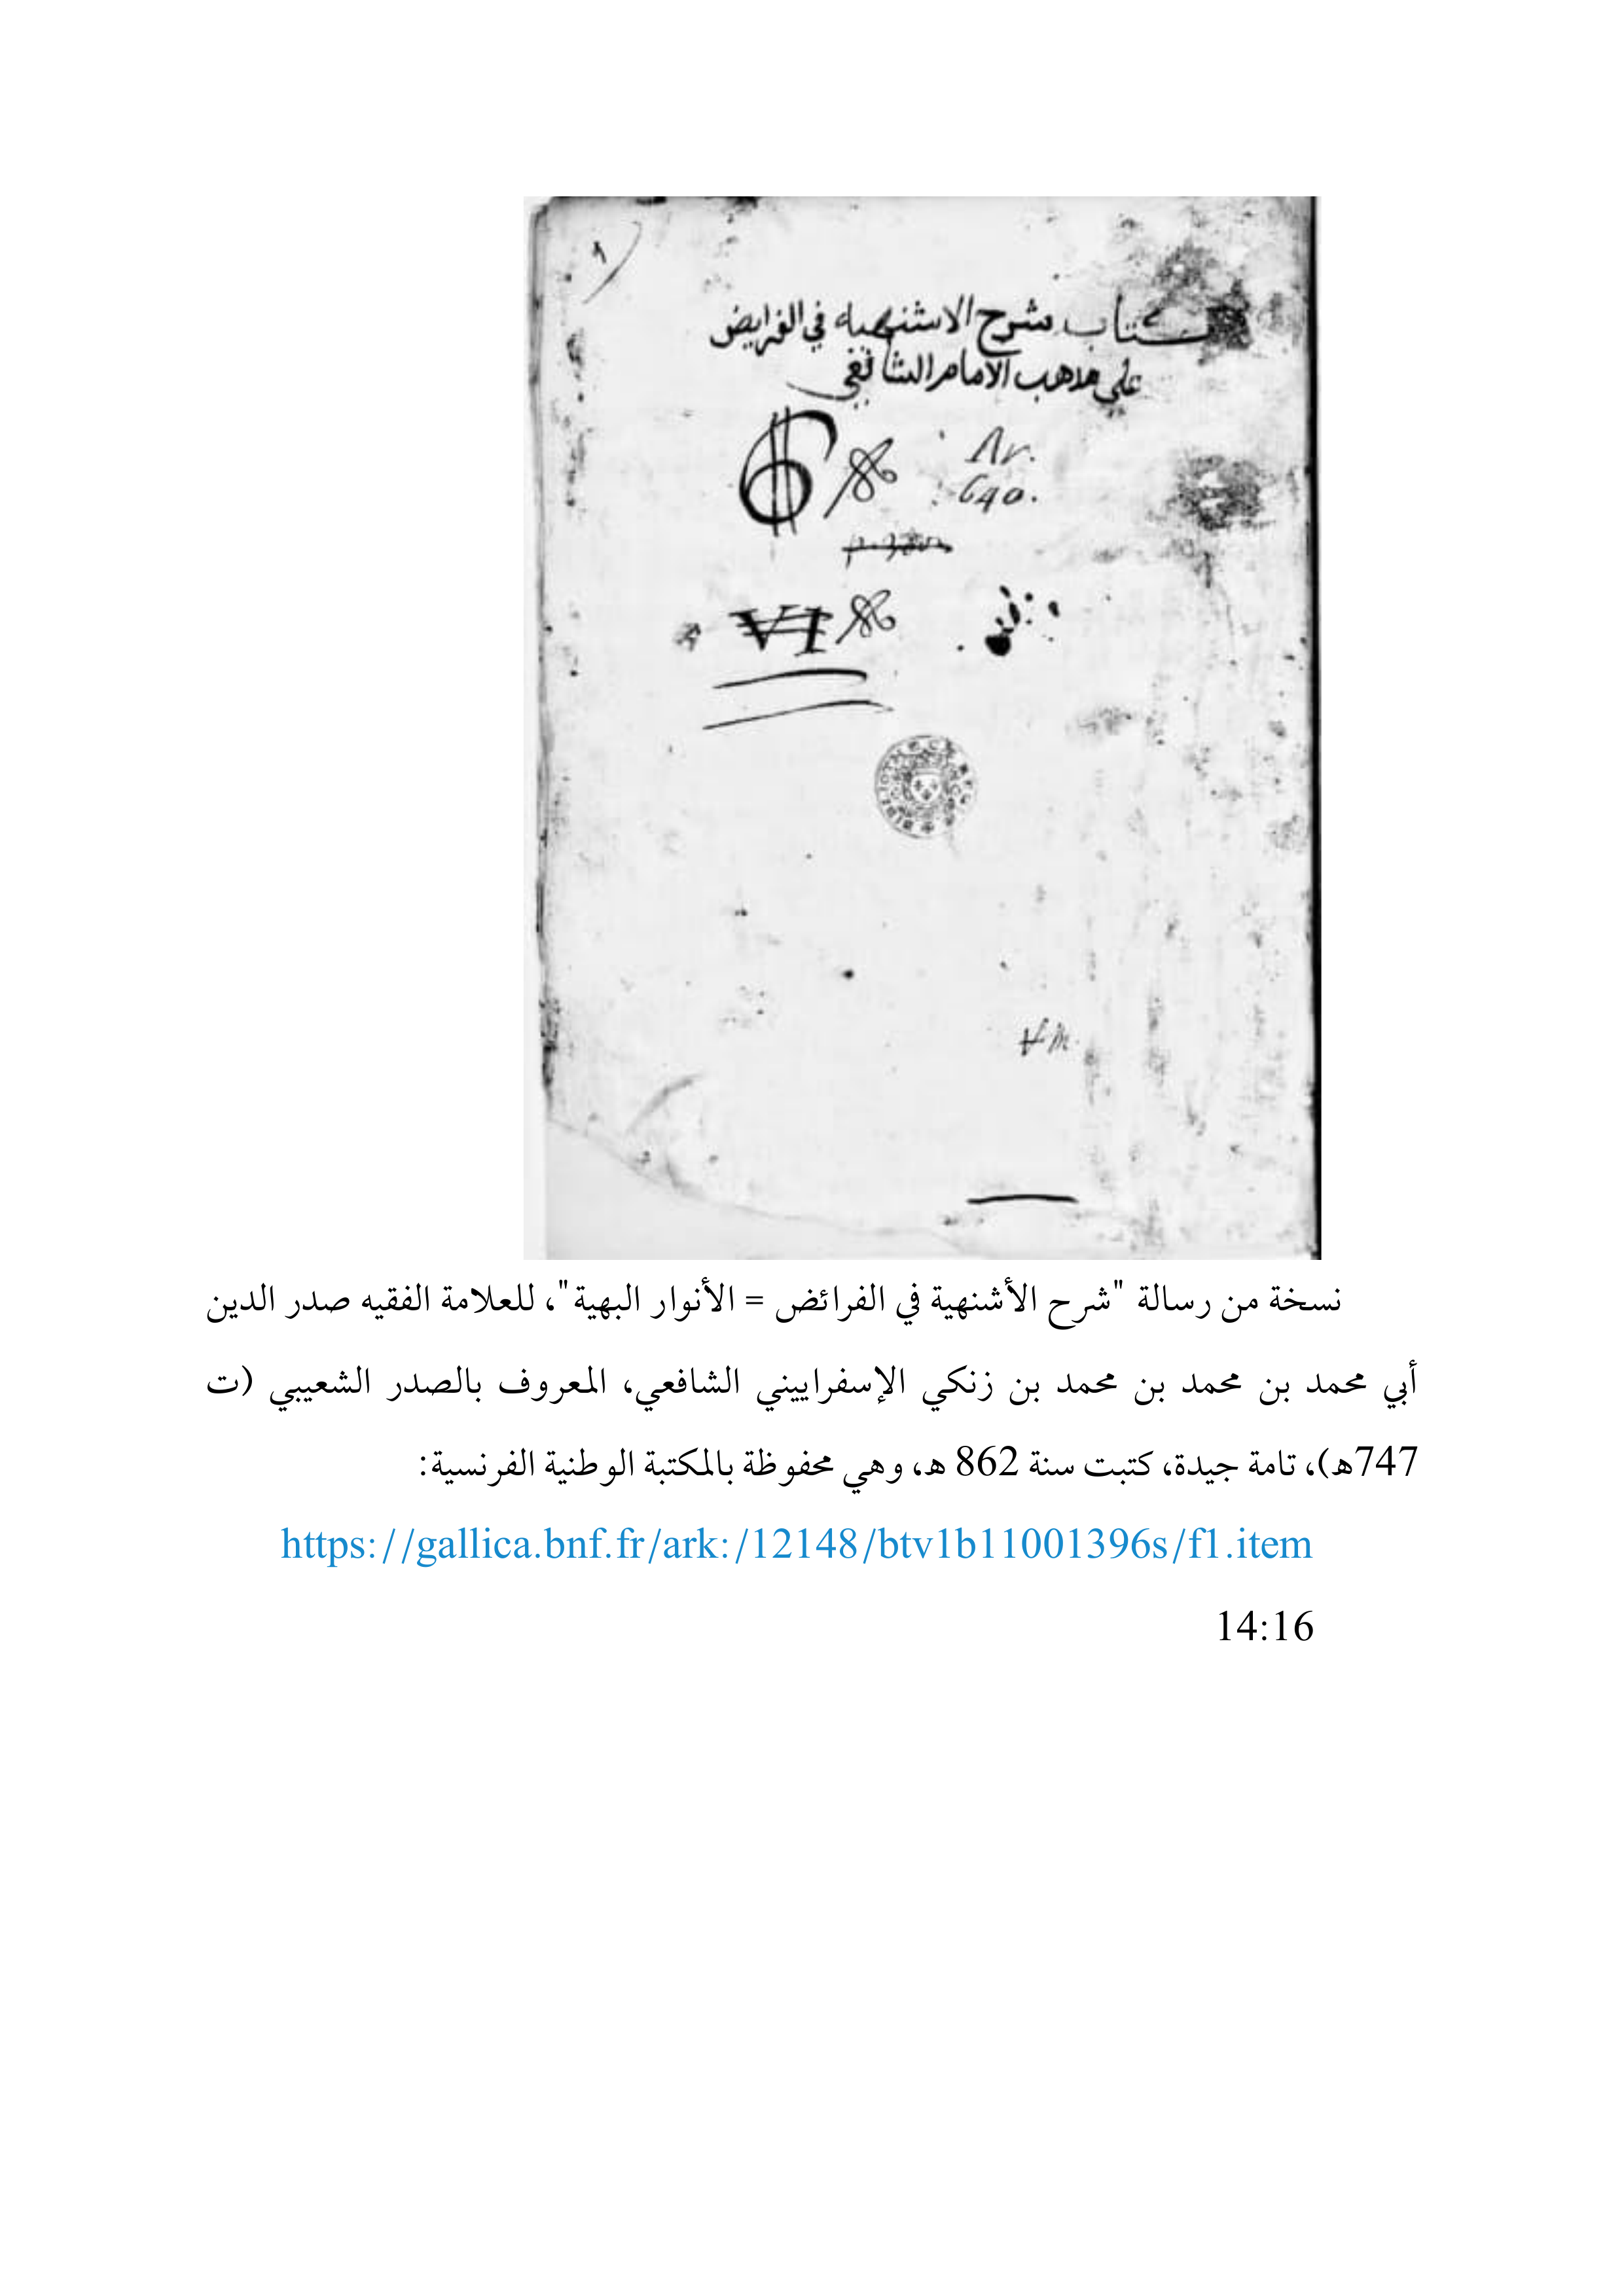 ١
كتاب شرح الاشنهيه في الفرايض
على مذهب الامام الشافعي
6
Ar.
640.
VI
نسخة من رسالة "شرح الأشنهية في الفرائض = الأنوار البهية"، للعلامة الفقيه صدر الدين
أبي محمد بن محمد بن محمد بن زنكي الإسفراييني الشافعي، المعروف بالصدر الشعيبي (ت
747هـ)، تامة جيدة، كتبت سنة 862 هـ، وهي محفوظة بالمكتبة الوطنية الفرنسية:
https://gallica.bnf.fr/ark:/12148/btv1b11001396s/f1.item
14:16